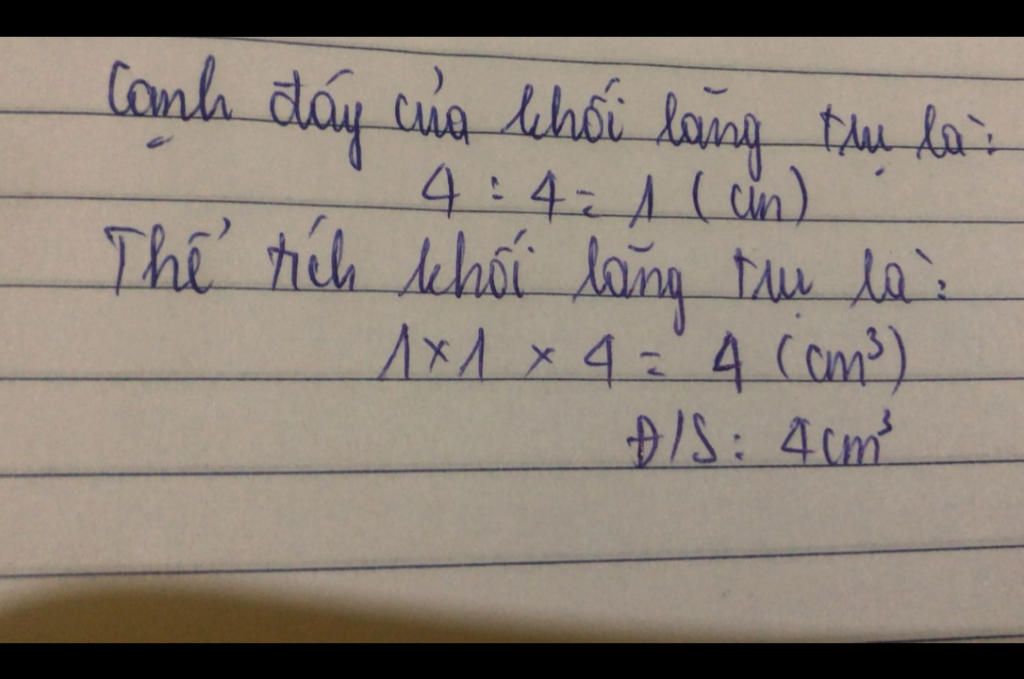 Cạnh đáy của khối lăng trụ là:
4 : 4 = 1 (cm)
Thể tích khối lăng trụ là:
1 x 1 x 4 = 4 (cm³)
Đ/S: 4cm³